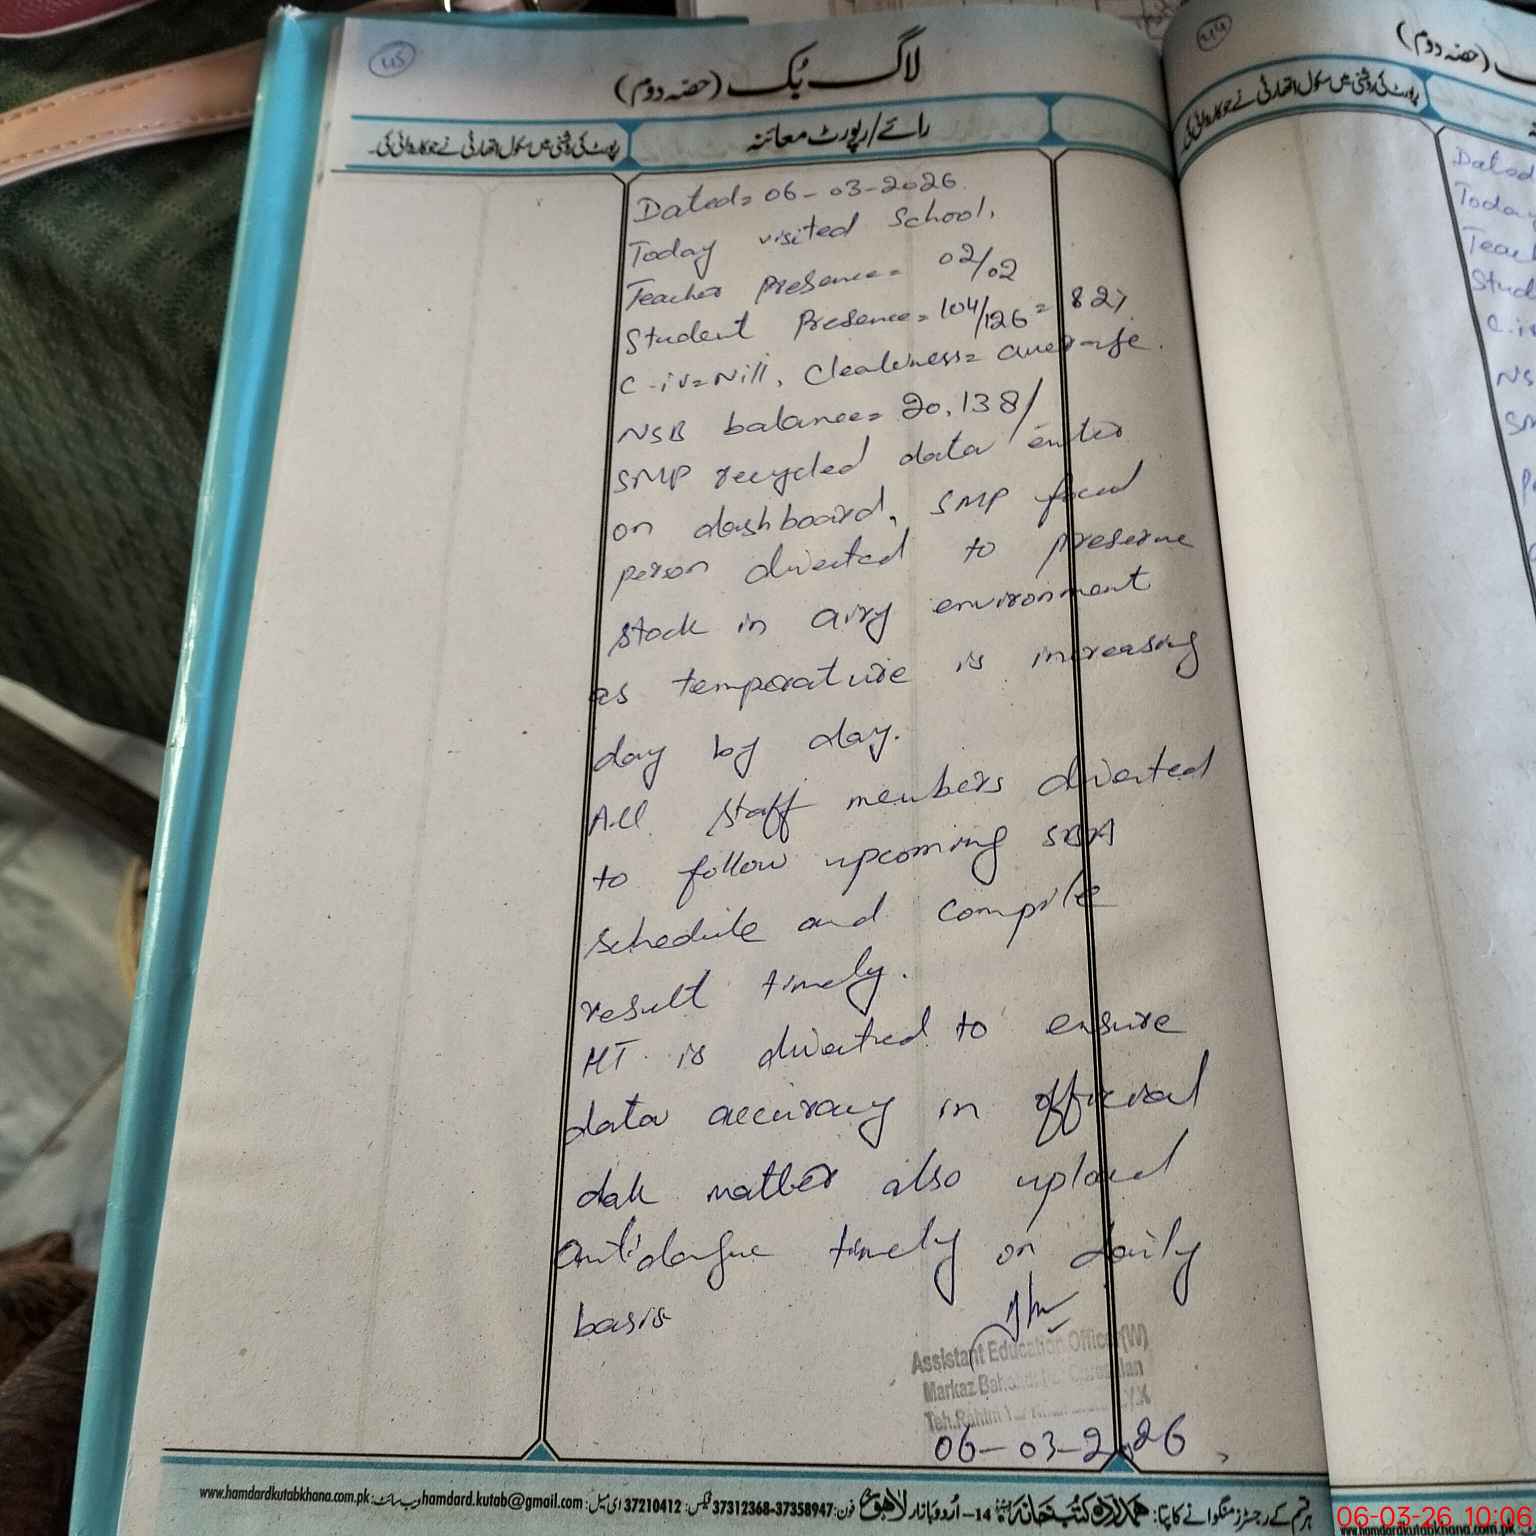 215
لاگ بُک (حصّہ دوم)
رائے/رپورٹ معائنہ
رپورٹ کی روشنی میں سکول اتھارٹی نے جو کاروائی کی۔
Dated= 06-03-2026.
Today visited School.
Teacher Presence= 02/02
Student Presence= 104/126 = 82%
C-iv=Nill, Cleakness= average.
NSB balance= 20,138/
SMP recycled data enter
on dashboard, SMP focal
person directed to preserve
stock in airy environment
as temperature is increasing
day by day.
All staff members directed
to follow upcoming SBA
schedule and compile
result timely.
HT is directed to ensure
data accuracy in official
dak matter also upload
antidengue timely on daily
basis
Assistant Education Officer (W)
Markaz
Teh.Rahim Y.K
06-03-2026
ہر قسم کے رجسٹرز منگوانے کا پتا: ہمدرد کتب خانہ 14-اُردو بازار لاہور فون: 37312368-37358947 فیکس: 37210412 ای میل: hamdard.kutab@gmail.com ویب سائٹ: www.hamdardkutabkhana.com.pk
214
(حصّہ دوم)
رپورٹ کی روشنی میں سکول اتھارٹی نے جو کاروائی کی۔
Dated
Today
Teach
Stud
C-i
NS
SM
www.hamdardkutabkhana.com.pk
06-03-26 10:06